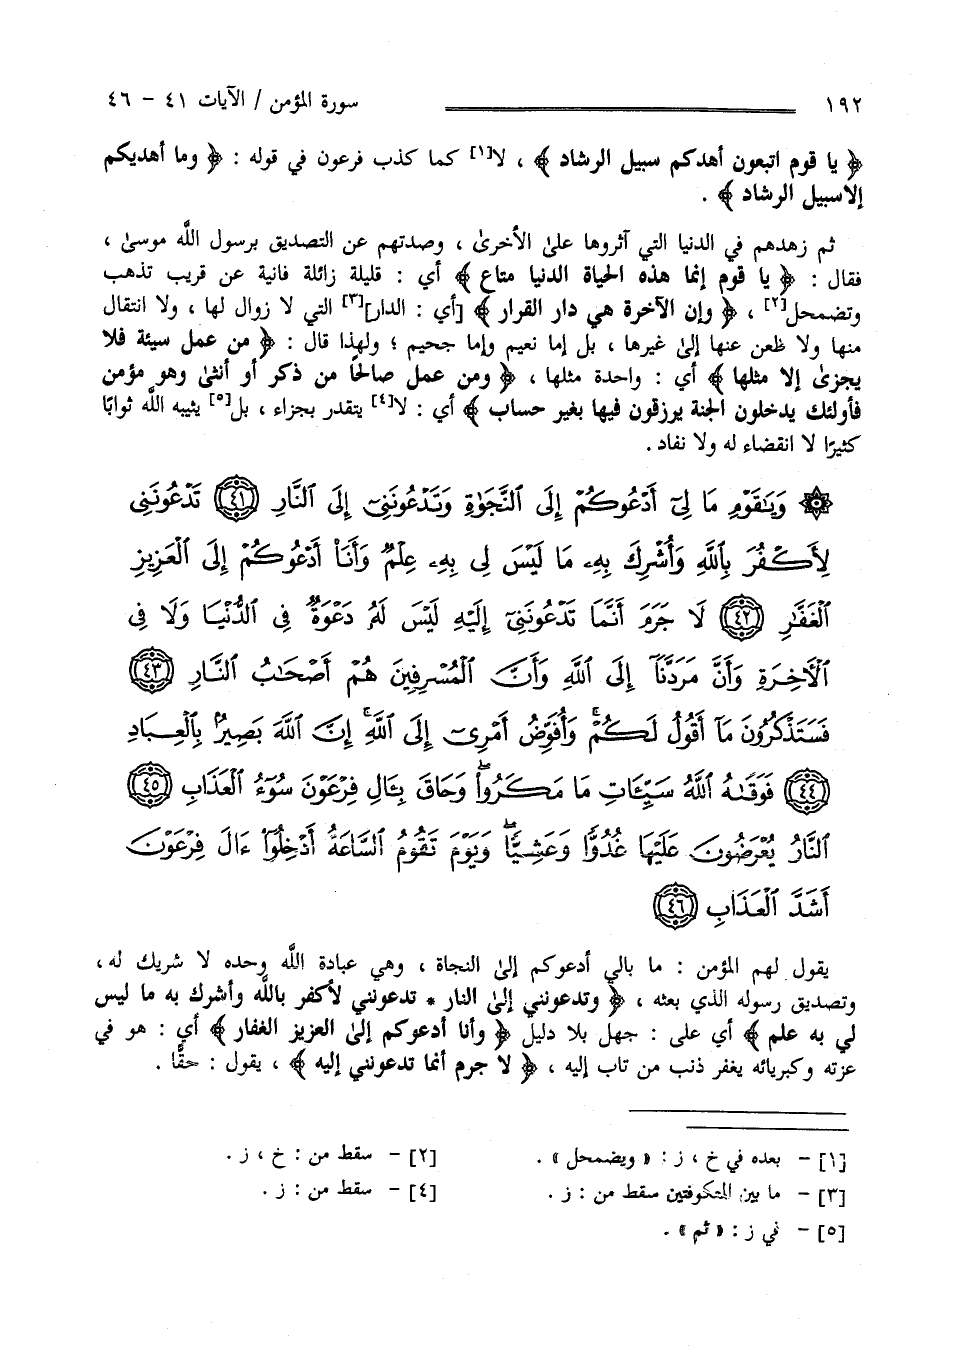 ١٩٢ سورة المؤمن / الآيات ٤١ - ٤٦
﴿ يا قوم اتبعون أهدكم سبيل الرشاد ﴾ ، لا[١] كما كذب فرعون في قوله : ﴿ وما أهديكم
إلا سبيل الرشاد ﴾ .
ثم زهدهم في الدنيا التي آثروها علىٰ الأخرىٰ ، وصدتهم عن التصديق برسول اللَّه موسىٰ ،
فقال : ﴿ يا قوم إنما هذه الحياة الدنيا متاع ﴾ أي : قليلة زائلة فانية عن قريب تذهب
وتضمحل[٢] ، ﴿ وإن الآخرة هي دار القرار ﴾ [أي : الدار][٣] التي لا زوال لها ، ولا انتقال
منها ولا ظعن عنها إلىٰ غيرها ، بل إما نعيم وإما جحيم ؛ ولهذا قال : ﴿ من عمل سيئة فلا
يجزىٰ إلا مثلها ﴾ أي : واحدة مثلها ، ﴿ ومن عمل صالحًا من ذكر أو أنثىٰ وهو مؤمن
فأولئك يدخلون الجنة يرزقون فيها بغير حساب ﴾ أي : لا[٤] يتقدر بجزاء ، بل[٥] يثيبه اللَّه ثوابًا
كثيرًا لا انقضاء له ولا نفاد .
۞ وَيَـٰقَوْمِ مَا لِىٓ أَدْعُوكُمْ إِلَى ٱلنَّجَوٰةِ وَتَدْعُونَنِىٓ إِلَى ٱلنَّارِ ٤١ تَدْعُونَنِى
لِأَكْفُرَ بِٱللَّهِ وَأُشْرِكَ بِهِۦ مَا لَيْسَ لِى بِهِۦ عِلْمٌ وَأَنَا۠ أَدْعُوكُمْ إِلَى ٱلْعَزِيزِ
ٱلْغَفَّـٰرِ ٤٢ لَا جَرَمَ أَنَّمَا تَدْعُونَنِىٓ إِلَيْهِ لَيْسَ لَهُۥ دَعْوَةٌ فِى ٱلدُّنْيَا وَلَا فِى
ٱلْأَخِرَةِ وَأَنَّ مَرَدَّنَآ إِلَى ٱللَّهِ وَأَنَّ ٱلْمُسْرِفِينَ هُمْ أَصْحَـٰبُ ٱلنَّارِ ٤٣
فَسَتَذْكُرُونَ مَآ أَقُولُ لَكُمْ ۚ وَأُفَوِّضُ أَمْرِىٓ إِلَى ٱللَّهِ ۚ إِنَّ ٱللَّهَ بَصِيرٌۢ بِٱلْعِبَادِ
٤٤ فَوَقَىٰهُ ٱللَّهُ سَيِّـَٔاتِ مَا مَكَرُوا۟ ۖ وَحَاقَ بِـَٔالِ فِرْعَوْنَ سُوٓءُ ٱلْعَذَابِ ٤٥
ٱلنَّارُ يُعْرَضُونَ عَلَيْهَا غُدُوًّا وَعَشِيًّا ۖ وَيَوْمَ تَقُومُ ٱلسَّاعَةُ أَدْخِلُوٓا۟ ءَالَ فِرْعَوْنَ
أَشَدَّ ٱلْعَذَابِ ٤٦
يقول لهم المؤمن : ما بالي أدعوكم إلىٰ النجاة ، وهي عبادة اللَّه وحده لا شريك له ،
وتصديق رسوله الذي بعثه ، ﴿ وتدعونني إلىٰ النار * تدعونني لأكفر باللَّه وأشرك به ما ليس
لي به علم ﴾ أي على : جهل بلا دليل ﴿ وأنا أدعوكم إلىٰ العزيز الغفار ﴾ أي : هو في
عزته وكبريائه يغفر ذنب من تاب إليه ، ﴿ لا جرم أنما تدعونني إليه ﴾ ، يقول : حقًّا .
[١] - بعده في خ ، ز : « ويضمحل » . [٢] - سقط من : خ ، ز .
[٣] - ما بين المعكوفتين سقط من : ز . [٤] - سقط من : ز .
[٥] - في ز : « ثم » .